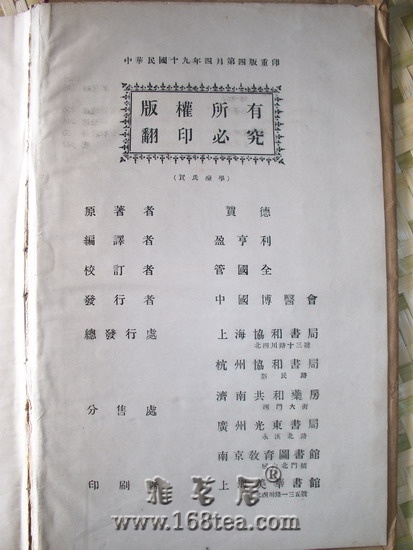 中華民國十九年四月第四版重印
版權所有
翻印必究
（賈氏療學）
原著者 賈德
編譯者 盈亨利
校訂者 管國全
發行者 中國博醫會
總發行處 上海協和書局
北四川路十三號
杭州協和書局
新民路
濟南共和藥房
西門大街
分售處
廣州光東書局
永漢北路
南京教育圖書館
北門橋
印刷 上海美華書館
北四川路一三五號
雅茗居®
www.168tea.com